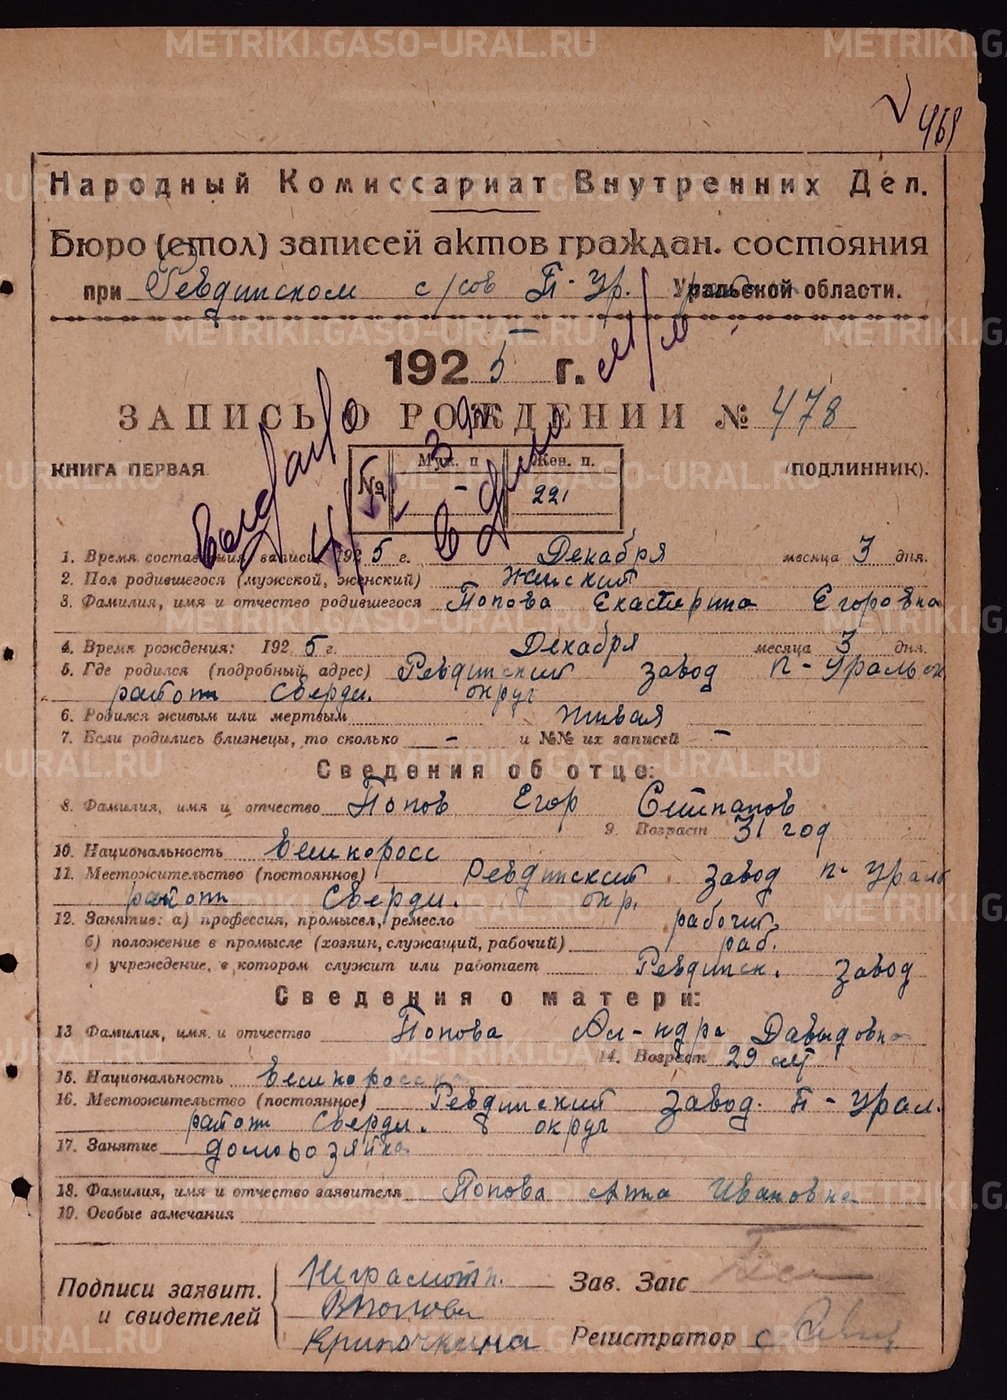 469
Народный Комиссариат Внутренних Дел.
Бюро (стол) записей актов граждан. состояния
при Ревдинском с/сов П-Ур. Уральской области.
1925 г.
ЗАПИСЬ О РОЖДЕНИИ № 478
КНИГА ПЕРВАЯ (ПОДЛИННИК).
№ Муж. п. Жен. п.
- 221
1. Время составления записи 1925 г. Декабря месяца 3 дня.
2. Пол родившегося (мужской, женский) женский
3. Фамилия, имя и отчество родившегося Попова Екатерина Егоровна
4. Время рождения: 1925 г. Декабря месяца 3 дня.
5. Где родился (подробный адрес) Ревдинский завод П-Уральск
район Свердл. округ
6. Родился живым или мертвым живая
7. Если родились близнецы, то сколько - и №№ их записей -
Сведения об отце:
8. Фамилия, имя и отчество Попов Егор Степанов
9. Возраст 31 год
10. Национальность великоросс
11. Местожительство (постоянное) Ревдинский завод п-Урал
район Свердл. окр.
12. Занятие: а) профессия, промысел, ремесло рабочий
б) положение в промысле (хозяин, служащий, рабочий) раб.
в) учреждение, в котором служит или работает Ревдинск. завод
Сведения о матери:
13 Фамилия, имя и отчество Попова Ал-ндра Давыдовна
14. Возраст 29 лет
15. Национальность великоросска
16. Местожительство (постоянное) Ревдинский завод. П-Урал.
район Свердл. округ
17. Занятие домохозяйка
18. Фамилия, имя и отчество заявителя Попова Анна Ивановна
19. Особые замечания
Подписи заявит. и свидетелей
Неграмотн.
ВПопова
Зав. Загс
Регистратор
METRIKI.GASO-URAL.RU